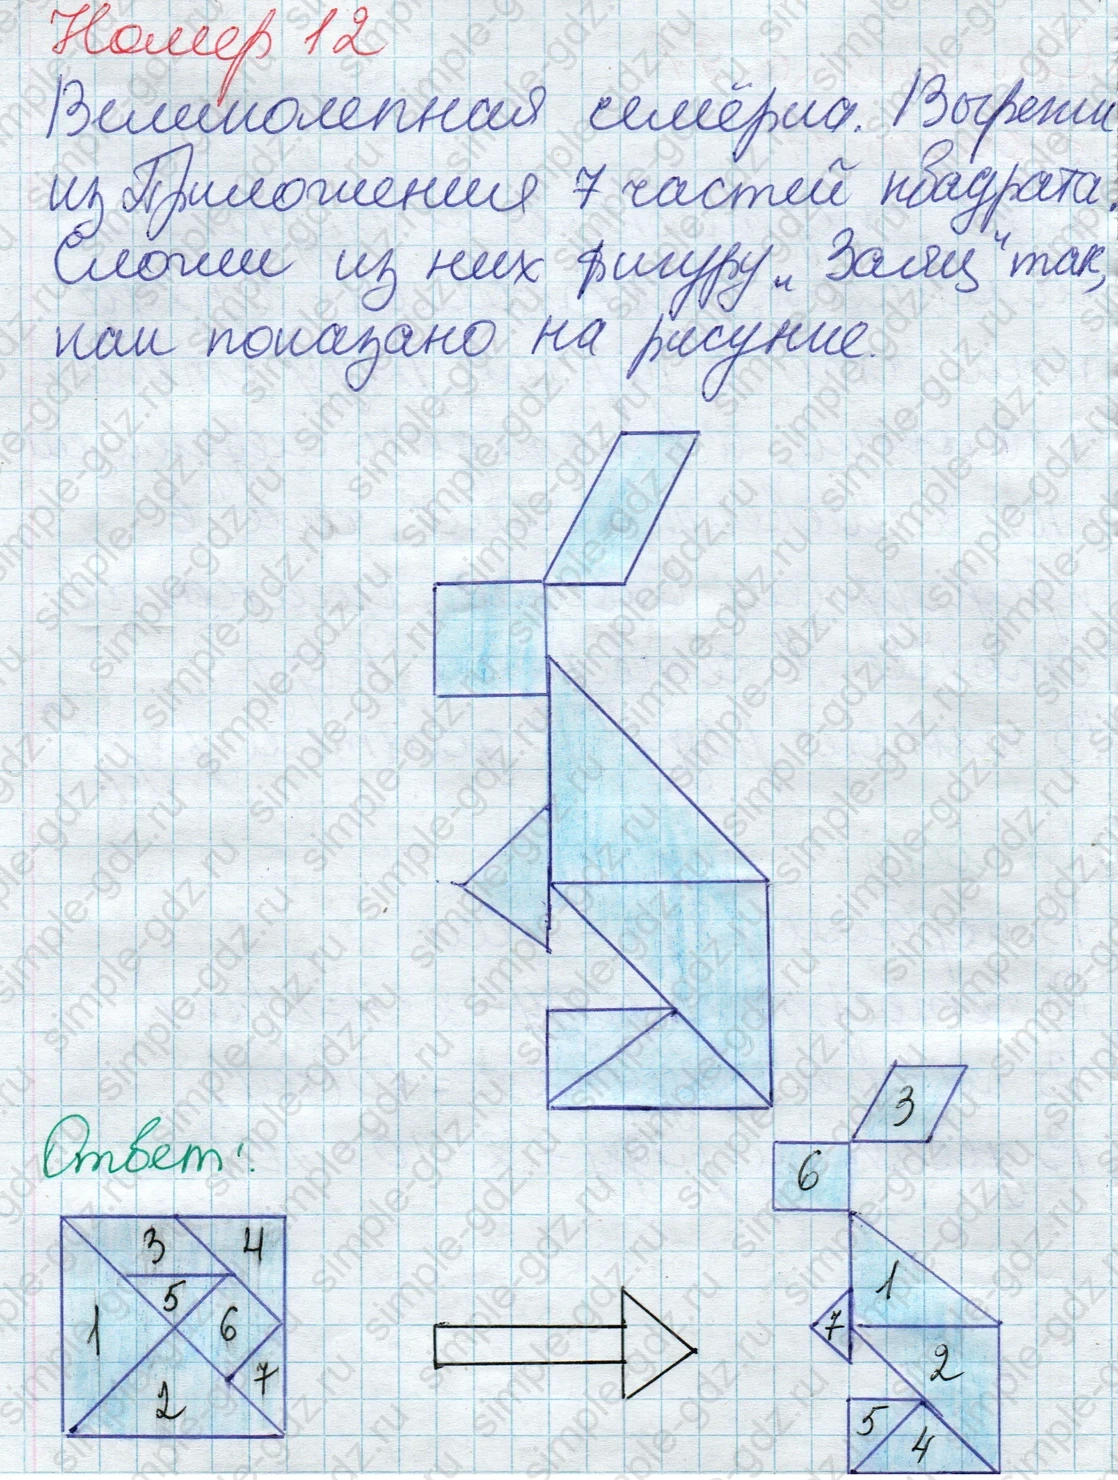 Номер 12
Великолепная семёрка. Вырежи
из Приложения 7 частей квадрата.
Сложи из них фигуру „Заяц" так,
как показано на рисунке.
Ответ:
3 4
5
1 6
7
2
3
6
1
7
2
5
4
simple-gdz.ru